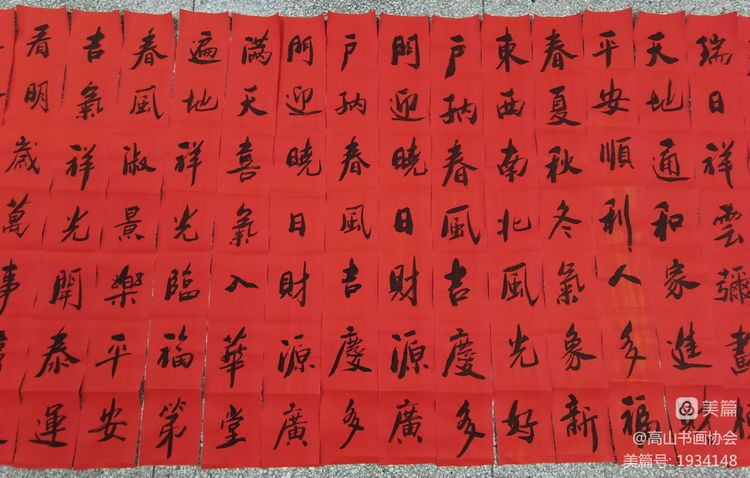 瑞日祥雲彌畫
天地通和家進財
平安順利人多福
春夏秋冬氣象新
東西南北風光好
戶納春風吉慶多
門迎曉日財源廣
戶納春風吉慶多
門迎曉日財源廣
滿天喜氣入華堂
遍地祥光臨福第
春風淑景樂平安
吉氣祥光開泰運
看明歲萬事
美篇
@高山书画协会
美篇号: 1934148